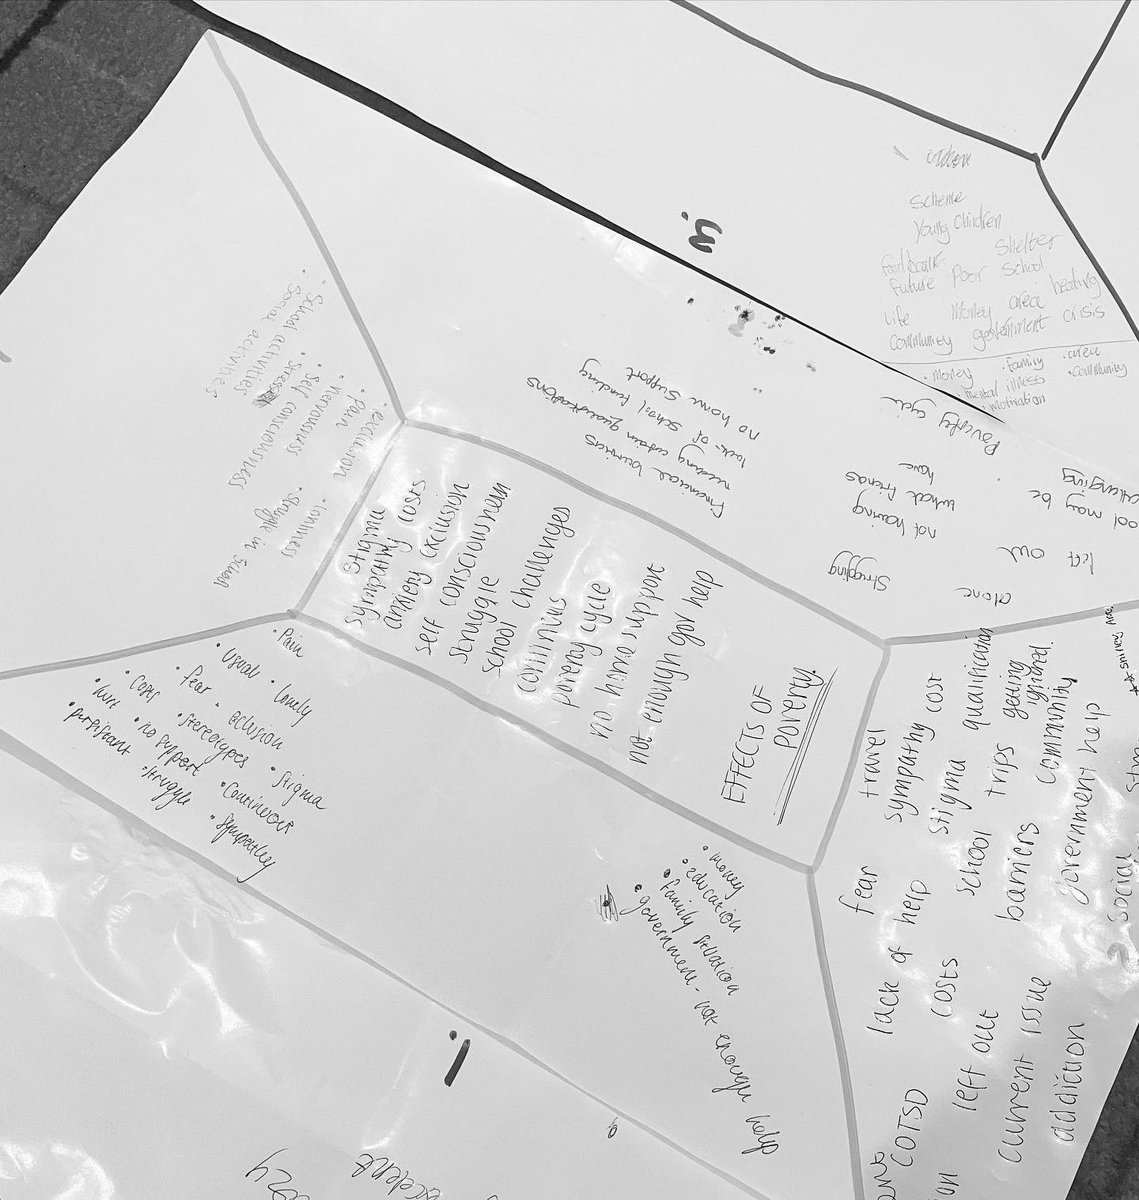 EFFECTS OF
POVERTY.
stigma
sympathy costs
anxiety exclusion
self consciousness
struggle
school challenges
continuous
poverty cycle
no home support
not enough gov help
• School activities
Social activities
• Stressed
• Self consciousness
• nervousness
• Pain
exclusion
• lonliness
• Struggle in School
Financial burries
needing certain qualifications
lack of school funding
no home support
Poverty cycle
not having
what friends
have
Struggling
alone
left out
ool may be
challenging
• Pain
• usual • lonely
• fear • exclusion
• costs • stereotypes • stigma
• hurt • no support • Continuous
• persistant • struggle • sympathy
• money
• education
• family situation
• government - not enough help
fear travel
lack of help sympathy cost
costs stigma qualification
COTSD school trips getting
ignored.
left out barriers community
current issue government help
addiction
social
scheme
Young Children
food bank Shelter
future Poor School
life Money area heating
community government crisis
• money • family • area
mental illness • community
• motivation
3.
1.